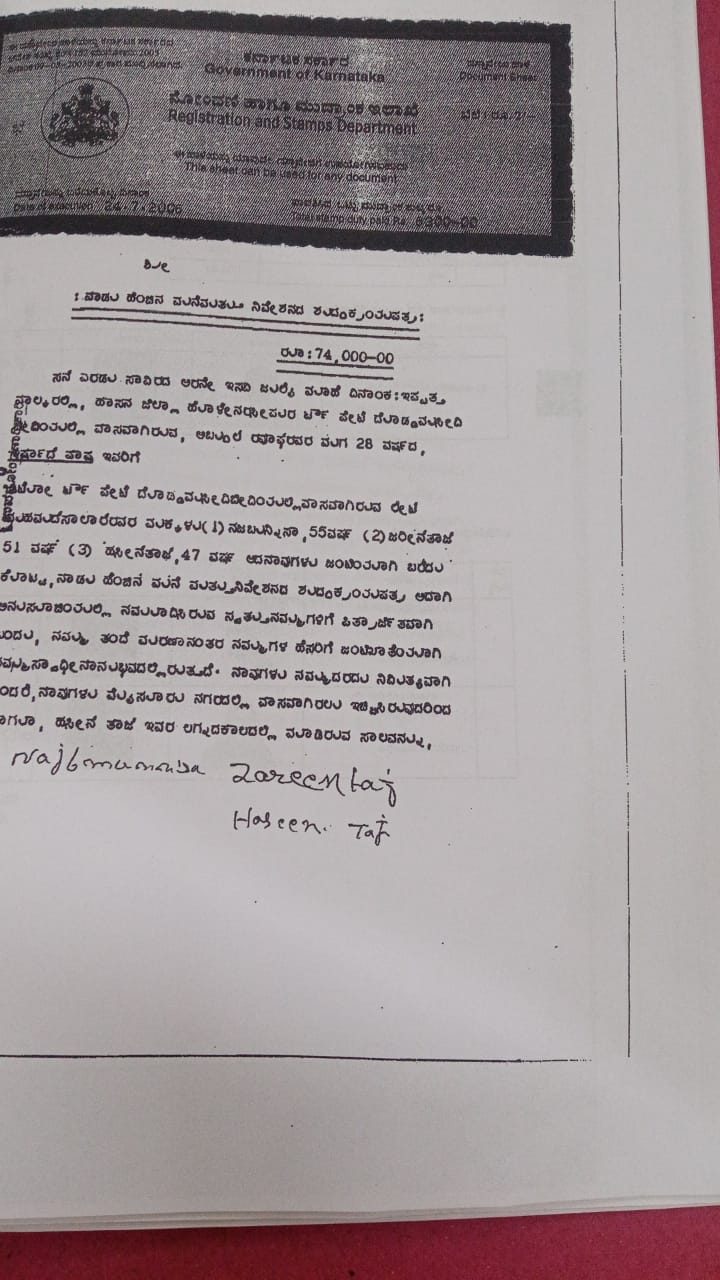 ಕರ್ನಾಟಕ ಸರ್ಕಾರ
Government of Karnataka
Document Sheet
ನೋಂದಣಿ ಹಾಗೂ ಮುದ್ರಾಂಕ ಇಲಾಖೆ
Registration and Stamps Department
ಬೆಲೆ : ರೂ. 2/-
This sheet can be used for any document
Date of execution 24.7.2006
Total stamp duty paid Rs.
ಶ್ರೀ
: ನಾಡು ಹೆಂಚಿನ ಮನೆಮತ್ತು ನಿವೇಶನದ ಶುದ್ಧಕ್ರಯಪತ್ರ :
ರೂ : 74,000-00
ಸನೆ ಎರಡು ಸಾವಿರದ ಆರನೇ ಇಸವಿ ಜುಲೈ ಮಾಹೆ ದಿನಾಂಕ:ಇಪ್ಪತ್ತ
ನಾಲ್ಕರಲ್ಲಿ, ಹಾಸನ ಜಿಲ್ಲಾ ಹೊಳೇನರಸೀಪುರ ಟೌನ್ ಪೇಟೆ ದೊಡ್ಡಮಸೀದಿ
ಬೀದಿಯಲ್ಲಿ ವಾಸವಾಗಿರುವ, ಅಬ್ದುಲ್ ರವೂಫ್‌ರವರ ಮಗ 28 ವರ್ಷದ,
ಪಾಷ ಇವರಿಗೆ
ಟೌನ್ ಪೇಟೆ ದೊಡ್ಡಮಸೀದಿಬೀದಿಯಲ್ಲಿವಾಸವಾಗಿರುವ ಲೇಟ್
ಮಕ್ಕಳು(1) ನಜಬುನ್ನಿಸಾ,55ವರ್ಷ (2) ಜರೀನ್‌ತಾಜ್
51 ವರ್ಷ (3) ಹಸೀನ್‌ತಾಜ್,47 ವರ್ಷ ಆದನಾವುಗಳು ಜಂಟಿಯಾಗಿ ಬರೆದು
ಕೊಟ್ಟ,ನಾಡು ಹೆಂಚಿನ ಮನೆ ಮತ್ತುನಿವೇಶನದ ಶುದ್ಧಕ್ರಯಪತ್ರ ಅದಾಗಿ
ನಮೂದಿಸಿರುವ ಸ್ವತ್ತುನಮ್ಮಗಳಿಗೆ ಪಿತ್ರಾರ್ಜಿತವಾಗಿ
ಬಂದು, ನಮ್ಮ ತಂದೆ ಮರಣಾನಂತರ ನಮ್ಮಗಳ ಹೆಸರಿಗೆ ಜಂಟಿಖಾತೆಯಾಗಿ
ನಮ್ಮಸ್ವಾಧೀನಾನುಭವದಲ್ಲಿರುತ್ತದೆ. ನಾವುಗಳು ನಮ್ಮದರದು ನಿಮಿತ್ಯವಾಗಿ
ಎಂದರೆ,ನಾವುಗಳು ಮೈಸೂರು ನಗರದಲ್ಲಿ ವಾಸವಾಗಿರಲು ಇಚ್ಛಿಸಿರುವುದರಿಂದ
ಹಾಗೂ, ಹಸೀನ್ ತಾಜ್ ಇವರ ಲಗ್ನದಕಾಲದಲ್ಲಿ ಮಾಡಿರುವ ಸಾಲವನ್ನು,
Zareen taj
Haseen. Taj